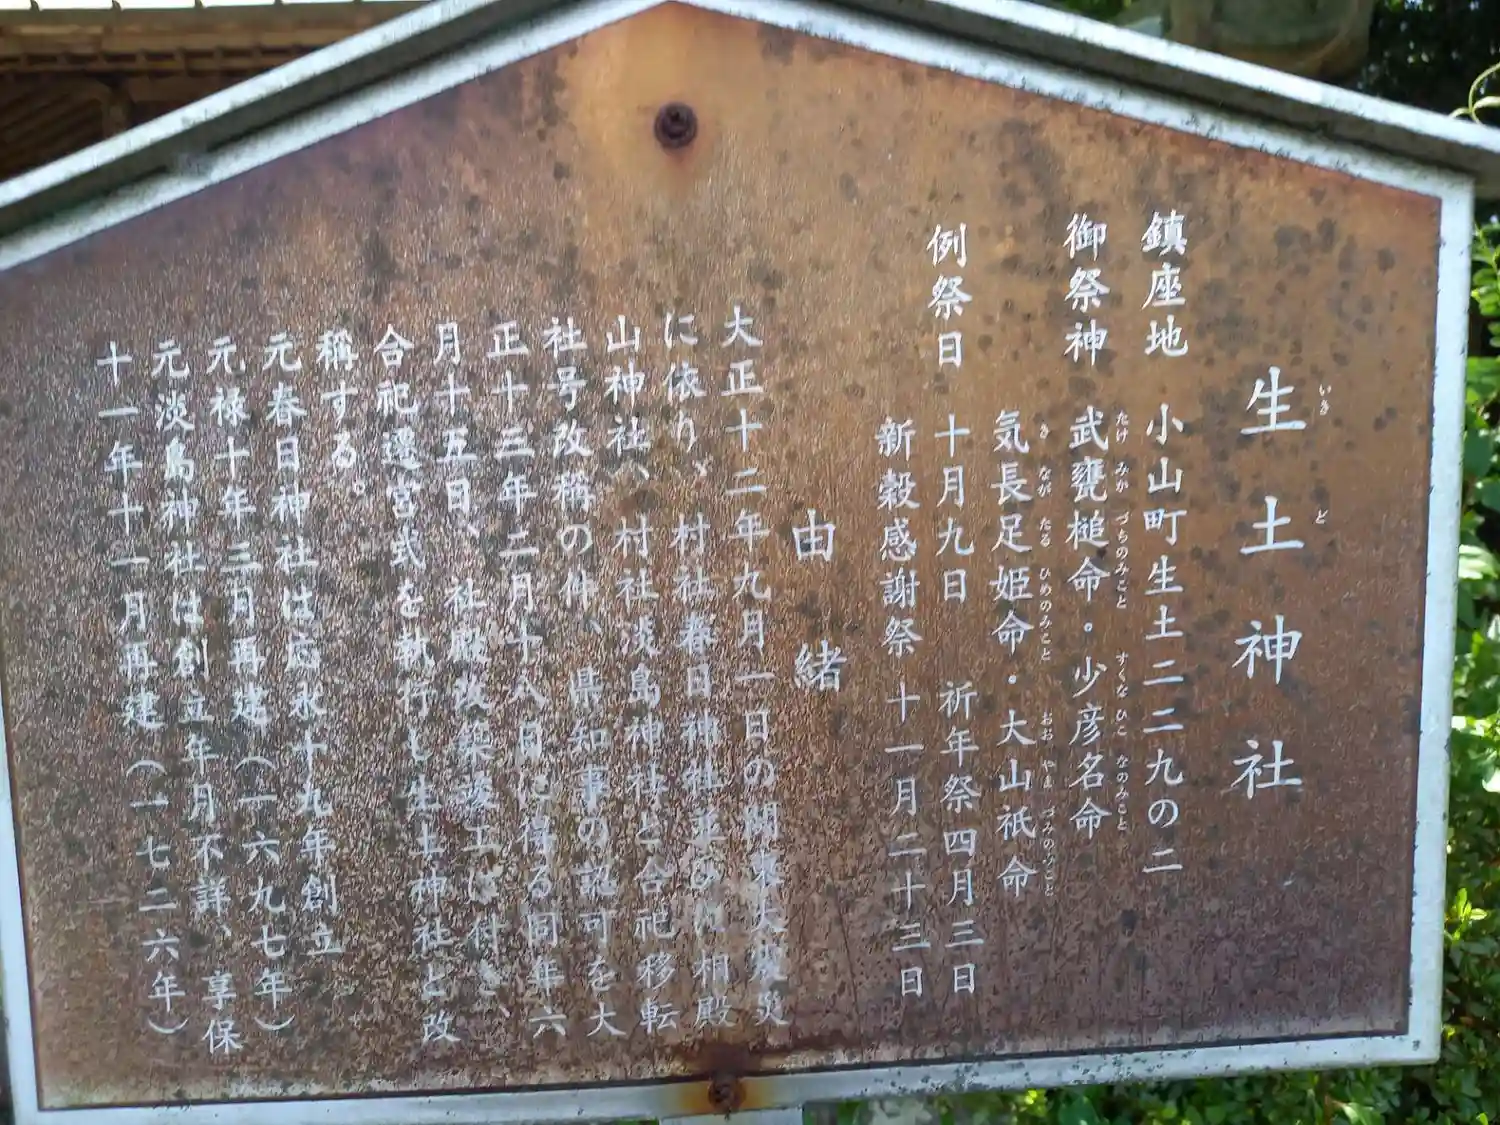 生土神社
いきど
鎮座地 小山町生土二二九の二
御祭神 武甕槌命・少彦名命
たけみかづちのみこと すくなひこなのみこと
気長足姫命・大山祇命
きながたるひめのみこと おおやまづみのみこと
例祭日 十月九日 祈年祭四月三日
新穀感謝祭 十一月二十三日
由緒
大正十二年九月一日の関東大震災
に依り、村社春日神社並びに相殿
山神社、村社淡島神社と合祀移転
社号改稱の件、県知事の認可を大
正十三年二月十八日に得る同年六
月十五日、社殿改築竣工に付き、
合祀遷宮式を執行し生土神社と改
稱する。
元春日神社は応永十九年創立
元禄十年三月再建（一六九七年）
元淡島神社は創立年月不詳、享保
十一年十一月再建（一七二六年）